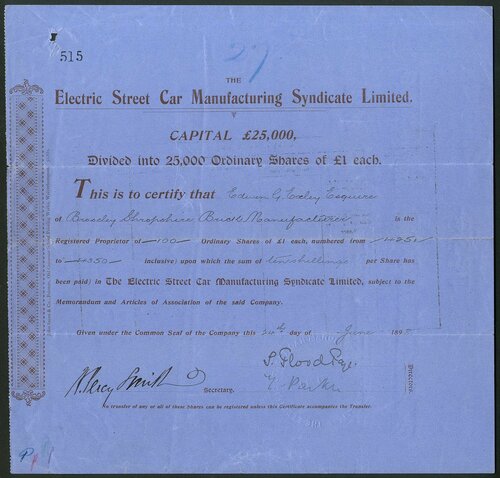 515
27
THE
Electric Street Car Manufacturing Syndicate Limited.
CAPITAL £25,000,
Divided into 25,000 Ordinary Shares of £1 each.
This is to certify that Edwin G. Exley Esquire
of Broseley Shropshire Brick Manufacturer is the
Registered Proprietor of 100 Ordinary Shares of £1 each, numbered from
to 4350 inclusive; upon which the sum of ten shillings per Share has
been paid; in The Electric Street Car Manufacturing Syndicate Limited, subject to the
Memorandum and Articles of Association of the said Company.
Given under the Common Seal of the Company this 20th day of June 189
S. Flood Page
Directors.
H. Percy Smith Secretary.
No transfer of any or all of these Shares can be registered unless this Certificate accompanies the Transfer.